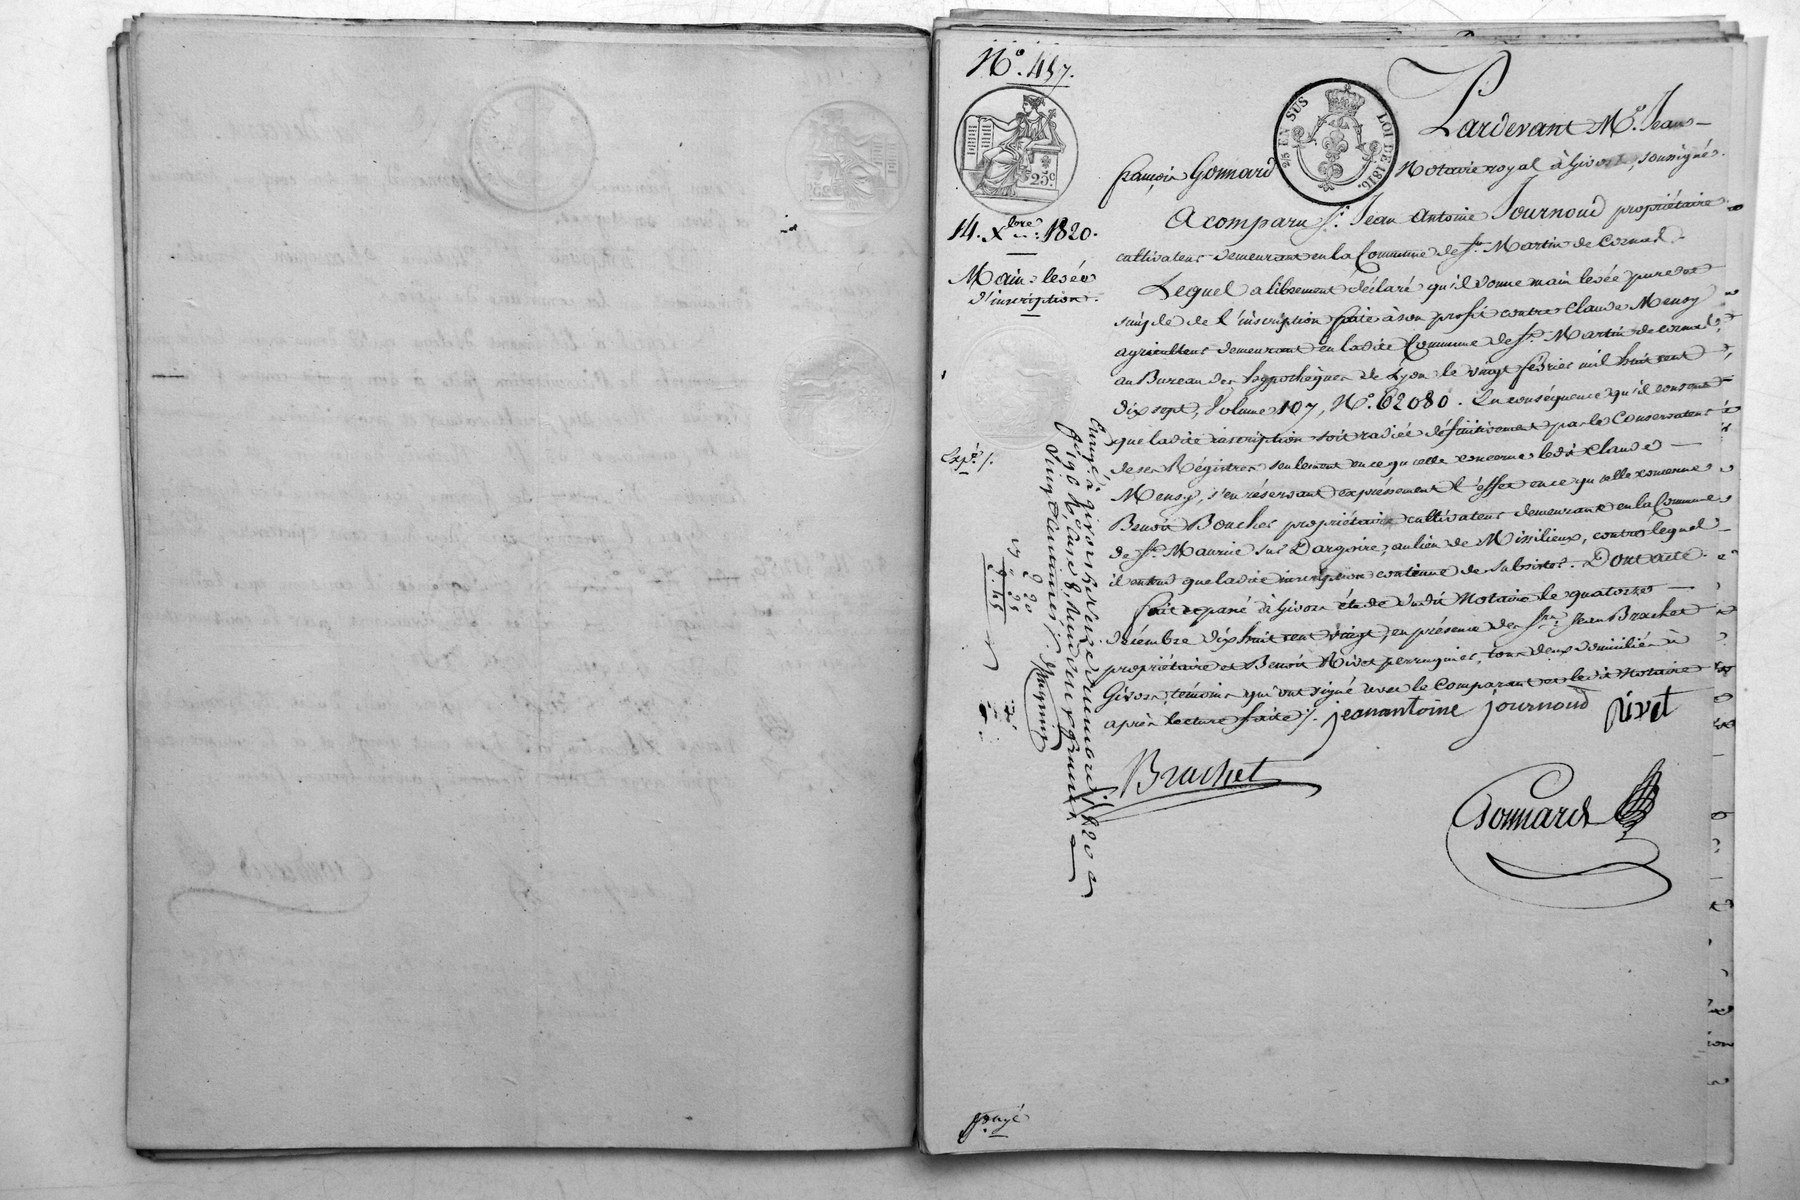 N.° 457.
2/5 EN SUS
LOI DE 1816.
25c
14. Xbre 1820.
Main-levée
d'inscription.
Expé. /.
Pardevant M.e Jean-
françois Gonnard Notaire royal à Givors, soussigné.
A comparu S.r Jean Antoine Journoud propriétaire
cultivateur demeurant en la Commune de St. Martin de Cornas.
Lequel a librement déclaré qu'il donne main levée pure et
simple de l'inscription faite à son profit contre Claude Mensy
agriculteur demeurant en ladite Commune de St. Martin de Cornas,
au Bureau des hypothèques de Lyon le vingt février mil huit cent
dix sept, Volume 107, N.° 62080. En conséquence qu'il consent
que ladite inscription soit radiée définitivement par le Conservateur
de ses Régistres seulement en ce qu'elle concerne ledit Claude
Mensy, s'en réservant expressément l'effet en ce qu'elle concerne
Benoit Boucher propriétaire cultivateur demeurant en la Commune
de St. Maurice sur Dargoire, au lieu de Missilieux, contre lequel
il entend que ladite inscription continue de subsister. Dont acte.
fait et passé à Givors étude dudit Notaire le quatorze
décembre dix huit cent vingt, en présence de Srs. Jean Brachet
propriétaire et Benoit Rivet perruquier, tous deux domiciliés à
Givors, témoins qui ont signé avec le comparant et le dit Notaire
après lecture faite /. jeanantoine journoud rivet
Brachet
Gonnard
Enregé. à givors le seize décembre 1820
fo. 196 Ro. Case 8, Reçu deux francs
vingt centimes /.
2 20